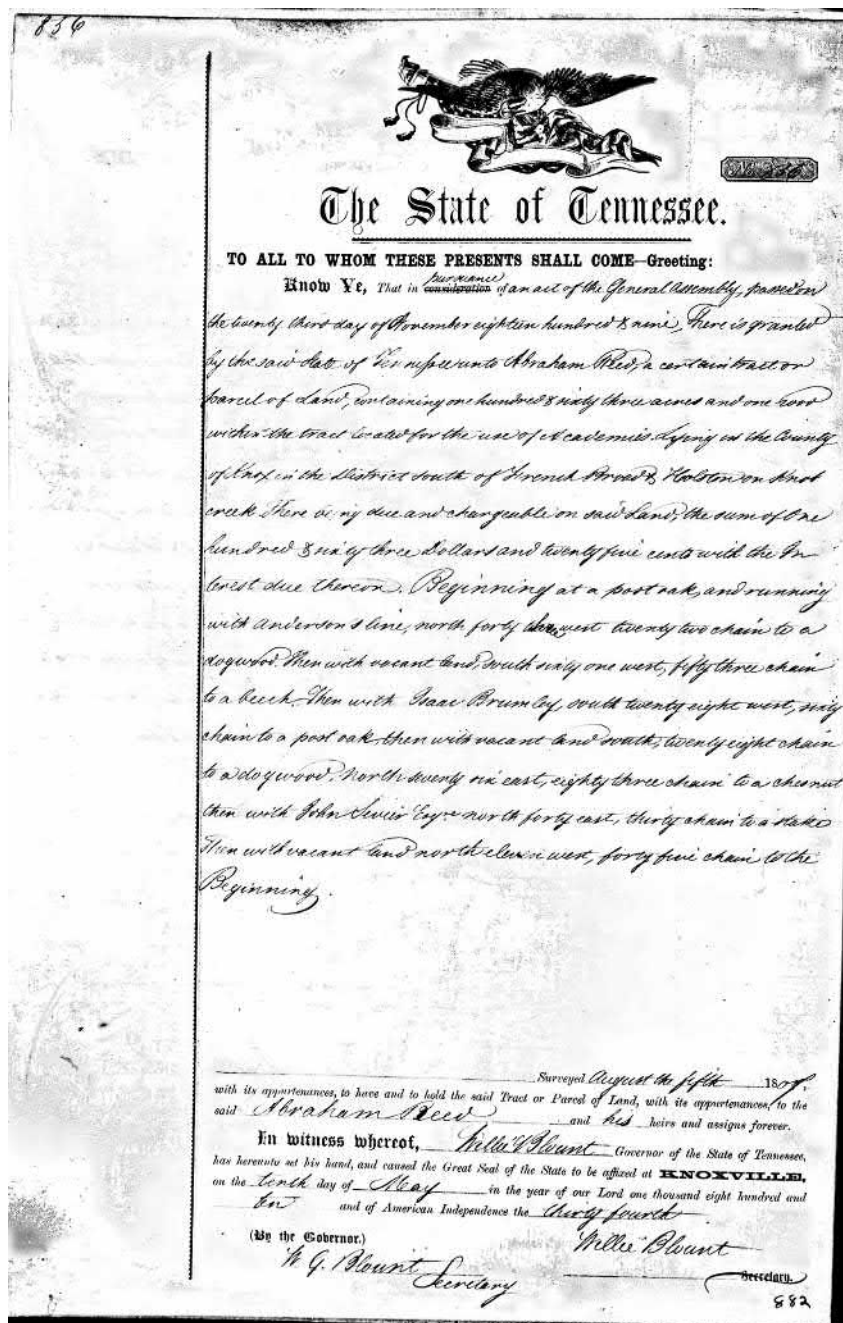 856
No 856
The State of Tennessee.
TO ALL TO WHOM THESE PRESENTS SHALL COME—Greeting:
pursuance
Know Ye, That in consideration of an act of the General Assembly, passed on
the twenty third day of November eighteen hundred & nine, There is granted
by the said State of Tennessee unto Abraham Reed, a certain tract or
parcel of Land, containing one hundred & sixty three acres and one rood
within the tract located for the use of Academies Lying in the County
of Knox in the District south of French Broad & Holston on Knob
creek There being due and chargeable on said Land, the sum of One
hundred & sixty three Dollars and twenty five cents with the In
terest due thereon. Beginning at a post oak, and running
with Anderson's line, north forty west twenty two chain to a
dogwood. Then with vacant land, south sixty one west, fifty three chain
to a beech. Then with Isaac Brumley, south twenty eight west, sixty
chain to a post oak, then with vacant land south, twenty eight chain
to a dogwood. North seventy six east, eighty three chain to a chesnut
then with John Sevier Esqr north forty east, thirty chain to a stake
Then with vacant land north eleven west, forty five chain to the
Beginning.
Surveyed August the fifth 180
with its appurtenances, to have and to hold the said Tract or Parcel of Land, with its appurtenances, to the
said Abraham Reed and his heirs and assigns forever.
In witness whereof, Willie Blount Governor of the State of Tennessee,
has hereunto set his hand, and caused the Great Seal of the State to be affixed at KNOXVILLE,
on the tenth day of May in the year of our Lord one thousand eight hundred and
ten and of American Independence the thirty fourth
(By the Governor.) Willie Blount
W. G. Blount Secretary Secretary.
882